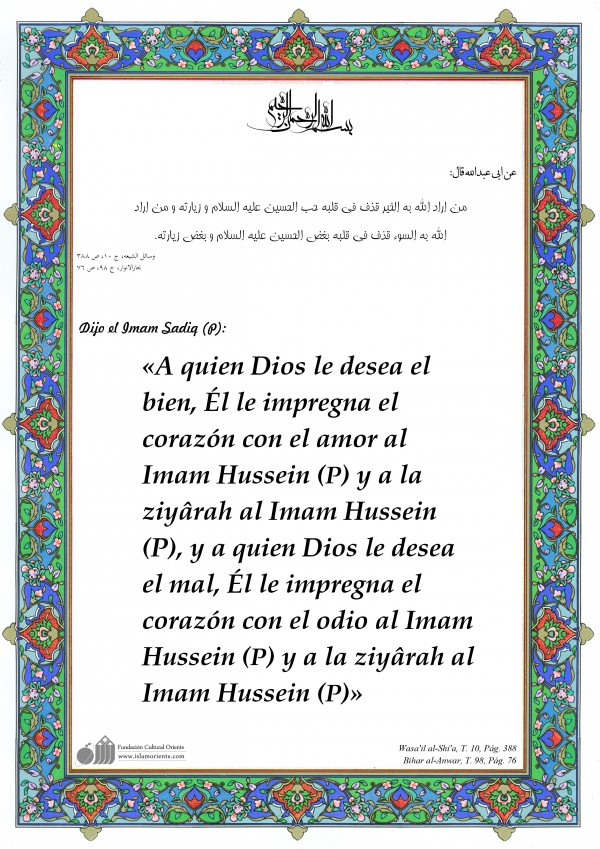 بسم الله الرحمن الرحیم
عن ابی عبدالله قال:
من اراد الله به الخیر قذف فی قلبه حب الحسین علیه السلام و زیارته و من اراد
الله به السوء قذف فی قلبه بغض الحسین علیه السلام و بغض زیارته.
وسائل الشیعه، ج ۱۰، ص ۳۸۸
بحارالانوار، ج ۹۸، ص ۷۶
Dijo el Imam Sadiq (P):
«A quien Dios le desea el
bien, Él le impregna el
corazón con el amor al
Imam Hussein (P) y a la
ziyârah al Imam Hussein
(P), y a quien Dios le desea
el mal, Él le impregna el
corazón con el odio al Imam
Hussein (P) y a la ziyârah al
Imam Hussein (P)»
Fundación Cultural Oriente
www.islamoriente.com
Wasa'il al-Shi'a, T. 10, Pág. 388
Bihar al-Anwar, T. 98, Pág. 76